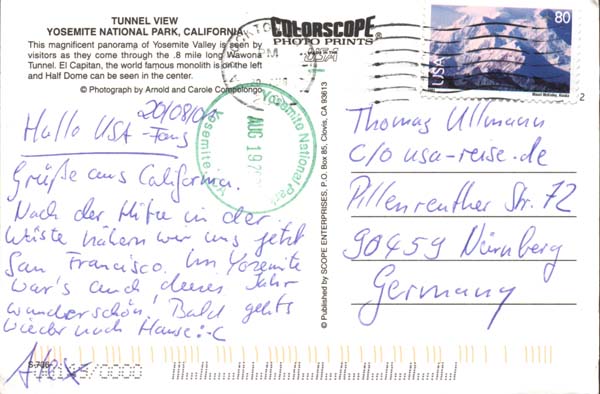 TUNNEL VIEW
YOSEMITE NATIONAL PARK, CALIFORNIA
This magnificent panorama of Yosemite Valley is seen by
visitors as they come through the .8 mile long Wawona
Tunnel. El Capitan, the world famous monolith is on the left
and Half Dome can be seen in the center.
© Photograph by Arnold and Carole Compolongo
COLORSCOPE
PHOTO PRINTS
USA
PM
80
USA
Mount McKinley, Alaska
2
Yosemite National Park
AUG 19
Yosemite,
20/08/0
Hallo USA-Fans
Grüße aus California.
Nach der Hitze in der
Wüste nähern wir uns jetzt
San Francisco. Im Yosemite
war's auch dieses Jahr
wunderschön! Bald gehts
wieder nach Hause :-(
Alex
© Published by SCOPE ENTERPRISES, P.O. Box 85, Clovis, CA 93613
Thomas Ullmann
c/o usa-reise.de
Pillenreuther Str. 72
90459 Nürnberg
Germany
/0000